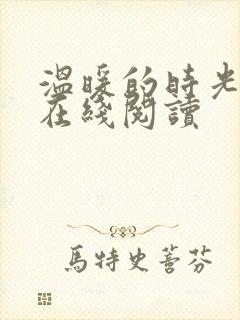 温暖的時光
在綫閱讀
馬特史蒼芬